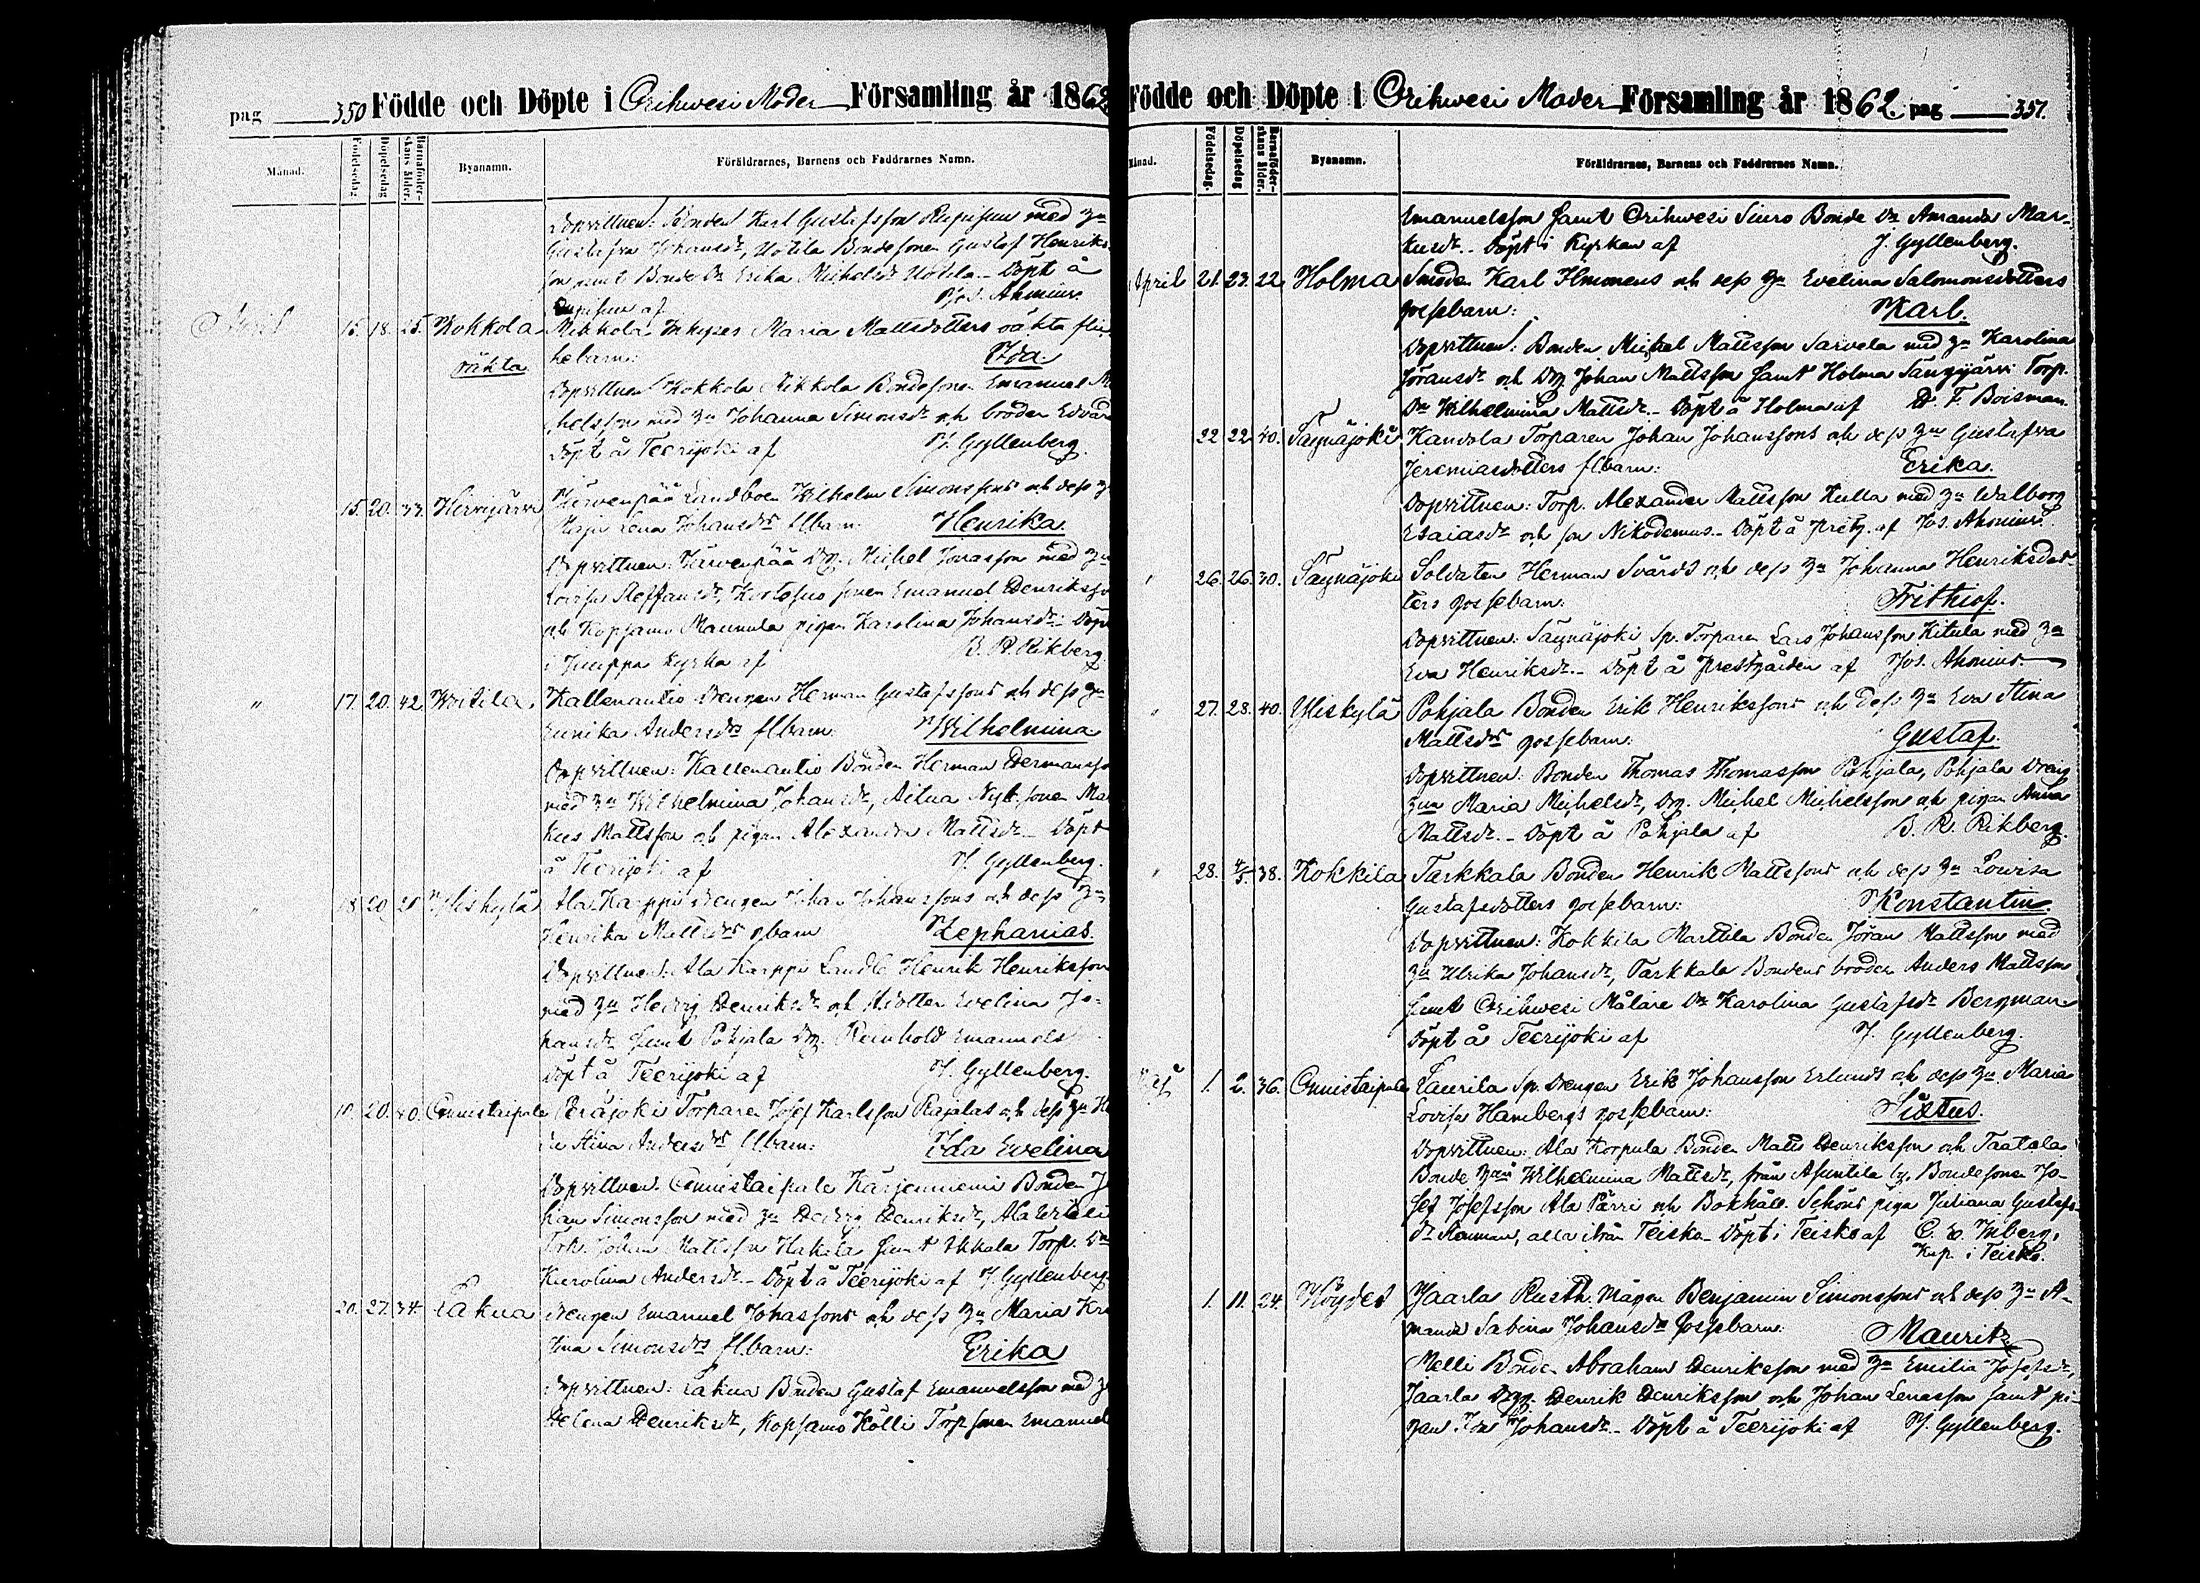 pag 350 Födde och Döpte i Orihwesi Moder Församling år 1862
Månad. Födelsedag. Döpelsedag Barnaföderskans ålder. Byanamn. Föräldrarnes, Barnens och Faddrarnes Namn.
Dopvittnen: Bonden Karl Gustafsson med hu
Gustafva Johansdr, Uotila Bondesonen Gustaf Henriks-
son samt Bonde Dr Erika Michelsdr Uotila - Döpt å
af Jos. Ahonius.
April 15. 18. 25. Kokkola Mikkola Inhyses Maria Mattsdotters oäkta flic-
oäkta kebarn: Ida.
Dopvittnen: Kokkola Mikkola Bondesonen Emanuel Mi
chelsson med hu Johanna Simonsdr och broder Edvard
Döpt å Teerijoki af J. Gyllenberg.
" 15. 20. 33. Hirvijärvi Järvenpää Landboen Wilhelm Simonssons och dess h
Maja Lena Johansdrs flbarn: Henrika.
Dopvittnen: Järvenpää Drg. Michel Jonasson med hu
Lovisa Steffansdr, sonen Emanuel Henriksso
och Kopsamo Mannula pigan Karolina Johansdr. Döpt
i Juuppa kyrka af B. R. Rikberg
" 17. 20. 42. Woitila Kallenautio Drengen Herman Gustafssons och dess hu
Eunika Andersdrs flbarn: Wilhelmina
Dopvittnen: Kallenautio Bonden Herman Hermansso
med hu Wilhelmina Johansdr, sonen Mar
kus Mattsson och pigan Alexandra Mattsdr - Döpt
å Teerijoki af J. Gyllenberg.
" 18. 20. 21. Yliskylä Ala Karppi Drengen Johan Johanssons och dess hu
Henrika Mattsdrs gbarn Zephanias.
Dopvittnen: Ala Karppi Landb. Henrik Henriksson
med hu Hedvig Henriksdr och dotter Evelina Jo-
hansdr samt Pohjala Drg. Reinhold Emanuels
Döpt å Teerijoki af J. Gyllenberg.
" 19. 20. 40. Onnistaipale Peräjoki Torparen Josef Karlsson Rajalas och dess hu He
Stina Andersdrs flbarn: Ida Evelina
Dopvittnen: Onnistaipale Karjenniemi Bonden Jo
han Simonsson med hu Hedvig Henriksdr,
Torp. Johan Mattsson Hakala samt Ukkala Torp. Dr
Karolina Andersdr - Döpt å Teerijoki af J. Gyllenberg
" 20. 27. 34. Lakua Drengen Emanuel Johanssons och dess hu Maria Kri
tina Simonsdrs flbarn: Erika
Dopvittnen: Lakua Bonden Gustaf Emanuelsson med h
Helena Henriksdr, Kopsamo Kölli Torp sonen Emanuel
Födde och Döpte i Orihwesi Moder Församling år 1862. pag 351.
Månad. Födelsedag. Döpelsedag Barnaföderskans ålder. Byanamn. Föräldrarnes, Barnens och Faddrarnes Namn.
Emanuelsson samt Orihwesi Siuro Bonde Dr Amanda Mar-
kusdr - Döpt i Kyrkan af J. Gyllenberg.
April 21. 23. 22. Holma Smeden Karl Ilmonens och dess hu Evelina Salomonsdotters
gossebarn: Karl.
Dopvittnen: Bonden Michel Mattsson Sarvela med hu Karolina
Göransdr och Drg Johan Mattsson samt Holma Sangijärvi Torp.
Dr Wilhelmina Mattsdr - Döpt å Holma af D. F. Boisman.
22 22. 40. Säynäjoki Kandola Torparen Johan Johanssons och dess hu Gustafva
Jeremiasdotters flbarn: Erika.
Dopvittnen: Torp. Alexander Mattsson Kulla med hu Walborg
Esaiasdr och son Nikodemus - Döpt å prstg. af Jos. Ahonius.
" 26. 26. 30. Säynäjoki Soldaten Herman Svärds och dess hu Johanna Henriksdot-
ters gossebarn: Frithiof.
Dopvittnen: Säynäjoki Sp. Torparen Lars Johansson Kitula med hu
Eva Henriksdr - Döpt å Prestgården af Jos. Ahonius.
" 27. 28. 40. Yliskylä Pohjala Bonden Erik Henrikssons och dess hu Eva Stina
Mattsdrs gossebarn: Gustaf.
Dopvittnen: Bonden Thomas Thomasson Pohjala, Pohjala Dreng
hun Maria Michelsdr, Drg. Michel Michelsson och pigan Anna
Mattsdr - Döpt å Pohjala af B. R. Rikberg.
" 28. 4/5. 38. Kokkila Tarkkala Bonden Henrik Mattssons och dess hu Lowisa
Gustafsdotters gossebarn: Konstantin.
Dopvittnen: Kokkila Marttila Bonden Jöran Mattsson med
hu Ulrika Johansdr, Tarkkala Bondens broder Anders Mattsson
samt Orihwesi Målare Dr Karolina Gustafsdr Bergman
Döpt å Teerijoki af J. Gyllenberg.
Maj 1. 2. 36. Onnistaipale Laurila Sp. Drengen Erik Johansson Erlunds och dess hu Maria
Lovisa Hambergs gossebarn: Sixtus.
Dopvittnen: Ala Korpula Bonden Matts Henriksson och Taatala
Bonde hun Wilhelmina Mattsdr, från Asuntila by. Bondesonen Jo-
sef Josefsson Ala Pärri och Bokhåll. Schöns piga Juliana Gustafs-
dr, alla ifrån Teisko - Döpt i Teisko af C. E. Inberg,
Kap. i Teisko.
1. 11. 24. Jaarla Rusth. Mågen Benjamin Simonssons och dess hu A-
manda Sabina Johansdrs gossebarn: Mauritz
Melli Bonden Abraham Henriksson med hu Emilia Josefsdr,
Jaarla Drg. Henrik Henriksson och Johan Lenasson samt pi-
gan Ida Johansdr - Döpt å Teerijoki af J. Gyllenberg.